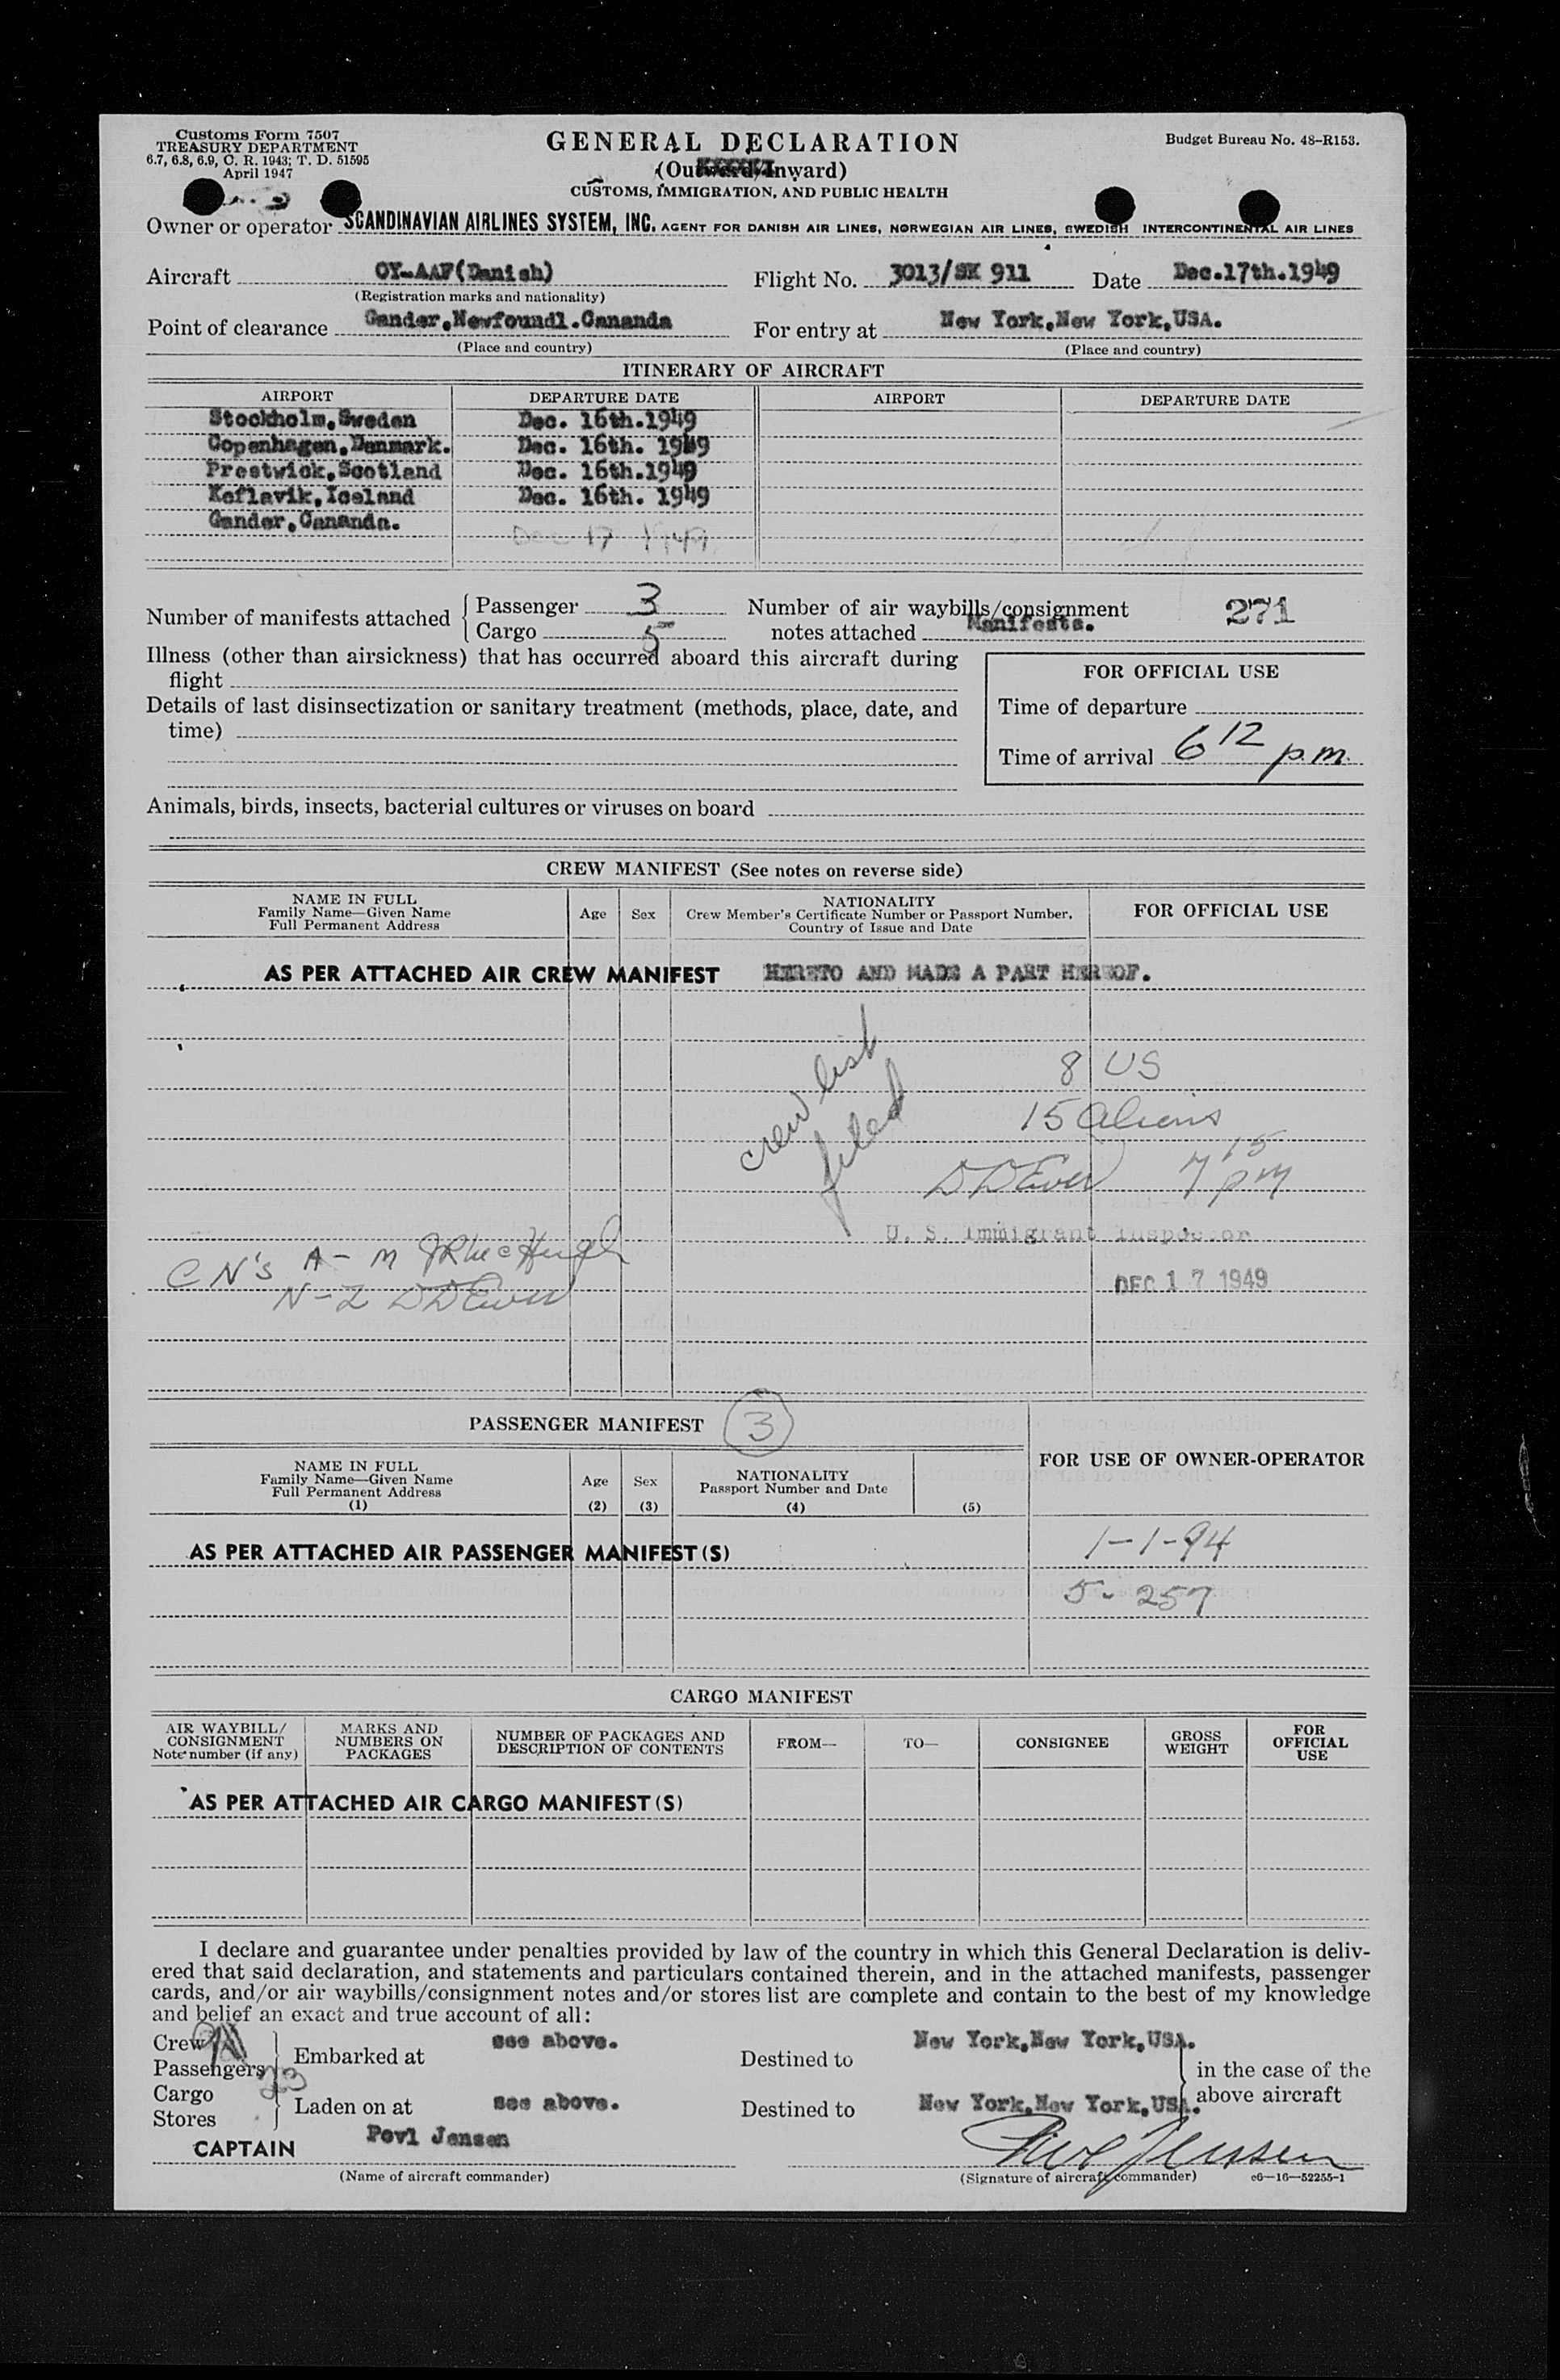 Customs Form 7507
TREASURY DEPARTMENT
6.7, 6.8, 6.9, C. R. 1943; T. D. 51595
April 1947
GENERAL DECLARATION
(Outward/Inward)
CUSTOMS, IMMIGRATION, AND PUBLIC HEALTH
Budget Bureau No. 48-R153.
Owner or operator SCANDINAVIAN AIRLINES SYSTEM, INC. AGENT FOR DANISH AIR LINES, NORWEGIAN AIR LINES, SWEDISH INTERCONTINENTAL AIR LINES
Aircraft OY-AAF(Danish) Flight No. 3013/SK 911 Date Dec.17th.1949
(Registration marks and nationality)
Point of clearance Gander,Newfoundl.Cananda For entry at New York,New York,USA.
(Place and country) (Place and country)
ITINERARY OF AIRCRAFT
AIRPORT DEPARTURE DATE AIRPORT DEPARTURE DATE
Stockholm,Sweden Dec. 16th.1949
Copenhagen,Denmark. Dec. 16th. 1949
Prestwick,Scotland Dec. 16th.1949
Keflavik,Iceland Dec. 16th. 1949
Gander,Cananda.
Dec 17 1949
Number of manifests attached { Passenger 3 Number of air waybills/consignment 271
Cargo 5 notes attached Manifests.
Illness (other than airsickness) that has occurred aboard this aircraft during
flight
FOR OFFICIAL USE
Details of last disinsectization or sanitary treatment (methods, place, date, and
time)
Time of departure
Time of arrival 6 12 p.m.
Animals, birds, insects, bacterial cultures or viruses on board
CREW MANIFEST (See notes on reverse side)
NAME IN FULL
Family Name—Given Name
Full Permanent Address
Age Sex
NATIONALITY
Crew Member's Certificate Number or Passport Number,
Country of Issue and Date
FOR OFFICIAL USE
AS PER ATTACHED AIR CREW MANIFEST HERETO AND MADE A PART HEREOF.
crew list
filed
8 US
15 aliens
7 15 pm
U. S. Immigrant Inspector
CN's A - M
N - Z
DEC 17 1949
PASSENGER MANIFEST 3
FOR USE OF OWNER-OPERATOR
NAME IN FULL
Family Name—Given Name
Full Permanent Address
(1)
Age
(2)
Sex
(3)
NATIONALITY
Passport Number and Date
(4)
(5)
AS PER ATTACHED AIR PASSENGER MANIFEST(S)
1-1-94
5-257
CARGO MANIFEST
AIR WAYBILL/
CONSIGNMENT
Note number (if any)
MARKS AND
NUMBERS ON
PACKAGES
NUMBER OF PACKAGES AND
DESCRIPTION OF CONTENTS
FROM—
TO—
CONSIGNEE
GROSS
WEIGHT
FOR
OFFICIAL
USE
AS PER ATTACHED AIR CARGO MANIFEST(S)
I declare and guarantee under penalties provided by law of the country in which this General Declaration is deliv-
ered that said declaration, and statements and particulars contained therein, and in the attached manifests, passenger
cards, and/or air waybills/consignment notes and/or stores list are complete and contain to the best of my knowledge
and belief an exact and true account of all:
Crew
Passengers 23
Embarked at see above. Destined to New York,New York,USA.
in the case of the
above aircraft
Cargo
Stores
Laden on at see above. Destined to New York,New York,USA.
CAPTAIN Povl Jensen
(Name of aircraft commander) (Signature of aircraft commander) c6—16—52255-1